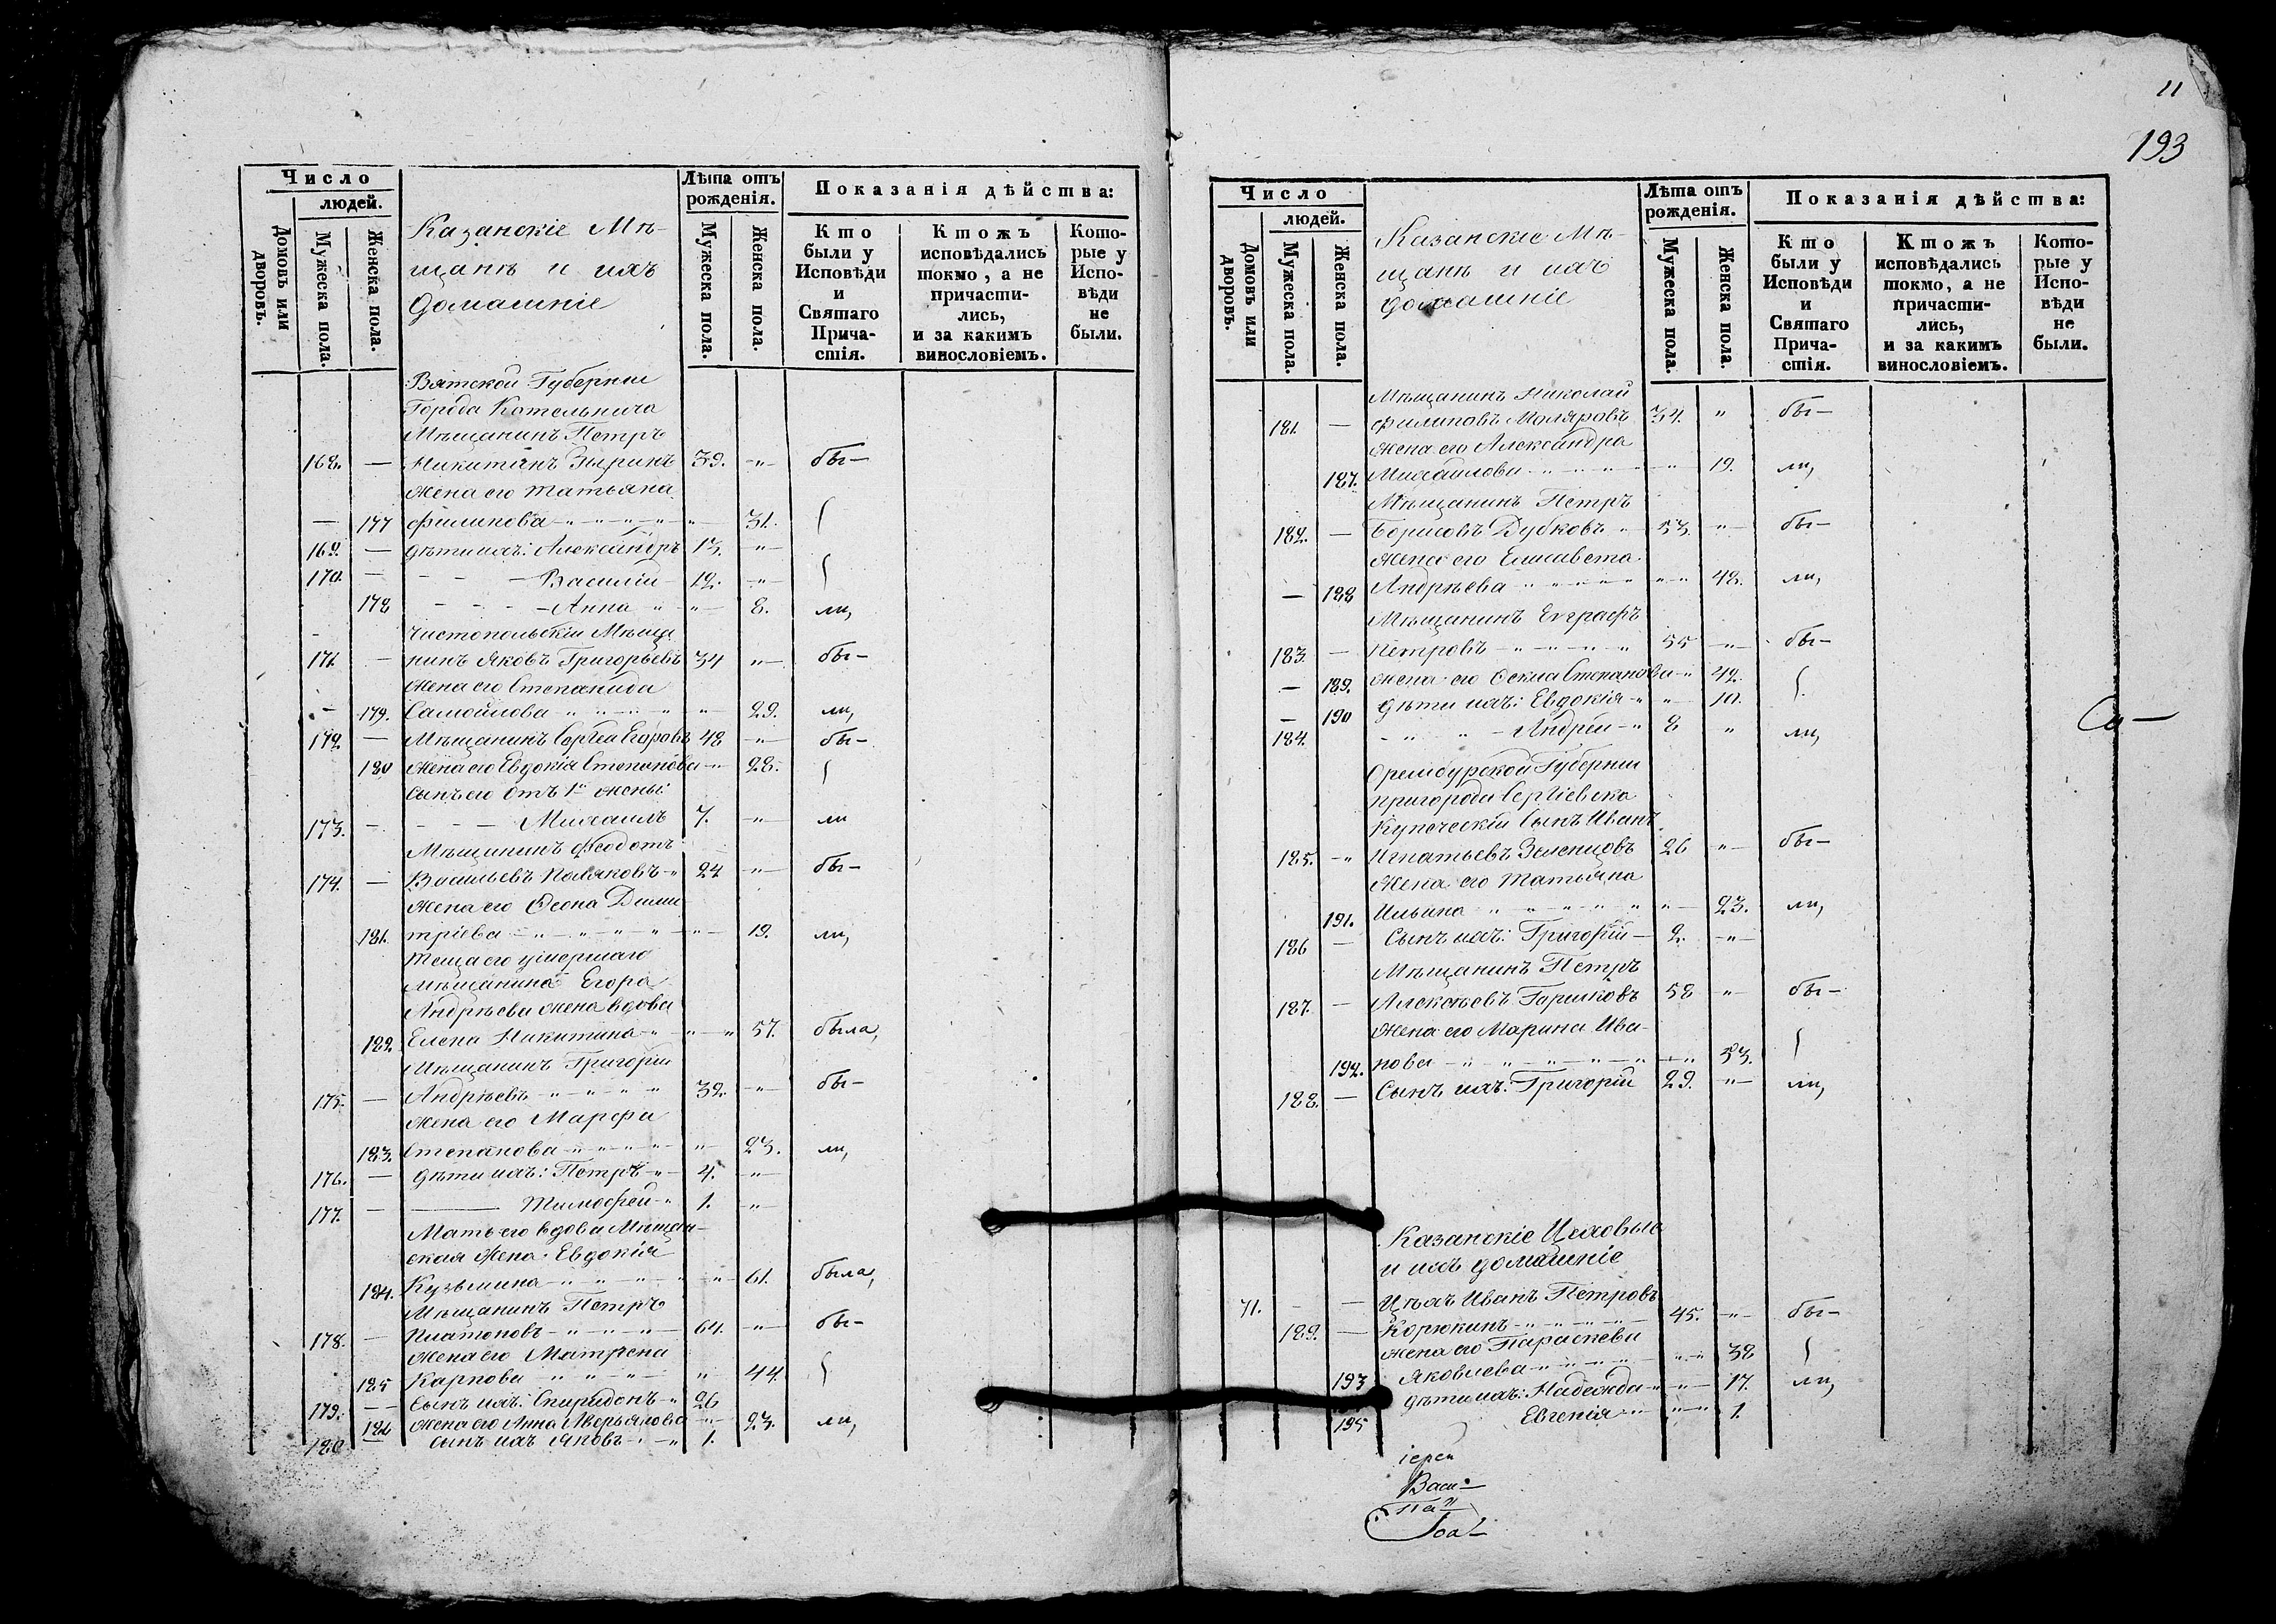 Число
людей.
Домовъ или дворовъ.
Мужеска пола.
Женска пола.
Казанскіе Мѣ-
щане и ихъ
домашніе
Лѣта отъ
рожденія.
Мужеска пола.
Женска пола.
Показанія дѣйства:
Кто
были у
Исповѣди
и
Святаго
Прича-
стія.
Ктожъ
исповѣдались
токмо, а не
причасти-
лись,
и за какимъ
винословіемъ.
Кото-
рые у
Испо-
вѣди
не
были.
Вятской Губерніи
Города Котельнича
Мѣщанинъ Петръ
168. — Никитинъ Зыринъ 39. -„- бы-
Жена его Татьяна
— 177 Филипова -„-„-„-„- 31.
169. — Дѣти ихъ: Александръ 13. -„-
170. — - - - Василій 12. -„-
178 - - - Анна „ - „ - 8. ли,
Чистопольскій Мѣща
171. — нинъ Яковъ Григорьевъ 34 „- бы-
Жена его Степанида
— 179. Самойлова -„-„-„-„ „- 29. ли,
172 — Мѣщанинъ Сергей Егоровъ 48 „- бы-
180 Жена его Евдокія Степанова -„ 28.
Сынъ его отъ 1й жены:
173. — - - - Михаилъ 7. -„- ли
Мѣщанинъ Федотъ
174. — Васильевъ Поляковъ -„ 24 -„- бы-
Жена его Дими
181. тріева -„-„-„-„-„- 19. ли,
Теща его умершаго
мѣщанина Егора
Андрѣева жена вдова
182. Елена Никитина -„-„-„ 57. была,
Мѣщанинъ Григорій
175. — Андрѣевъ -„-„-„-„ 32. -„- бы-
Жена его Марфа
183. Степанова -„-„-„-„- „- 23. ли,
176. — Дѣти ихъ: Петръ -„- 4. -„-
177. — —— Тимофей -„ 1. -„-
Мать его вдова Мѣщан-
ская Жена Евдокія
184. Кузьмина -„-„-„-„ -„- 61. была,
Мѣщанинъ Петръ
178. — Платоновъ -„-„-„- 64. -„- бы-
Жена его Матрена
185 Карпова -„-„-„- „- 44.
179. — Сынъ ихъ: Спиридонъ -„ 26
186 Жена его Анна Аверьянова -„- 23. ли,
180 сынъ ихъ Яковъ -„-„ 1.
11
193
Число
людей.
Домовъ или дворовъ.
Мужеска пола.
Женска пола.
Казанскіе Мѣ-
щане и ихъ
домашніе
Лѣта отъ
рожденія.
Мужеска пола.
Женска пола.
Показанія дѣйства:
Кто
были у
Исповѣди
и
Святаго
Прича-
стія.
Ктожъ
исповѣдались
токмо, а не
причасти-
лись,
и за какимъ
винословіемъ.
Кото-
рые у
Испо-
вѣди
не
были.
Мѣщанинъ Николай
181. — Филиповъ Моляровъ 34. „ бы-
Жена его Александра
187. Михайлова -„-„-„-„ 19. ли,
Мѣщанинъ Петръ
182. — Борисовъ Дубковъ „ 53. „- бы-
Жена его Елисавета
— 188 Андрѣева -„-„-„-„ „-„ 48. ли,
Мѣщанинъ Евграфъ
183. — Петровъ -„-„-„-„ 55 -„- бы-
— 189. Жена его Степанова -„ 42.
— 190 Дѣти ихъ: Евдокія -„ „- 10.
184. - „ „ - Андрей -„ 8 „ ли,
Оренбургской Губерніи
пригорода Сергіевска
Купеческій Сынъ Иванъ
185. -„ Игнатьевъ Зеленцовъ 26 „- бы-
Жена его Татьяна
191. Ильина „ „ „ „ „ „- 23. ли,
186 — Сынъ ихъ: Григорій - 2. -„-
Мѣщанинъ Петръ
187. — Алексѣевъ 58 „- бы-
Жена его Марина Ива-
192. нова -„-„-„-„-„ -„ 53.
188. — Сынъ ихъ: Григорій 29. „- ли,
Са—
Казанскіе Цеховые
и ихъ домашніе
71. — — Цѣхъ Иванъ Петровъ
189. — Корюкинъ -„-„-„- 45. -„- бы-
Жена его Параскева
193 Яковлева -„-„-„- „-„ 38
Дѣти ихъ: Надежда -„ „- 17. ли,
195 Евгенія -„- „-„ 1.
іерей
Васи-